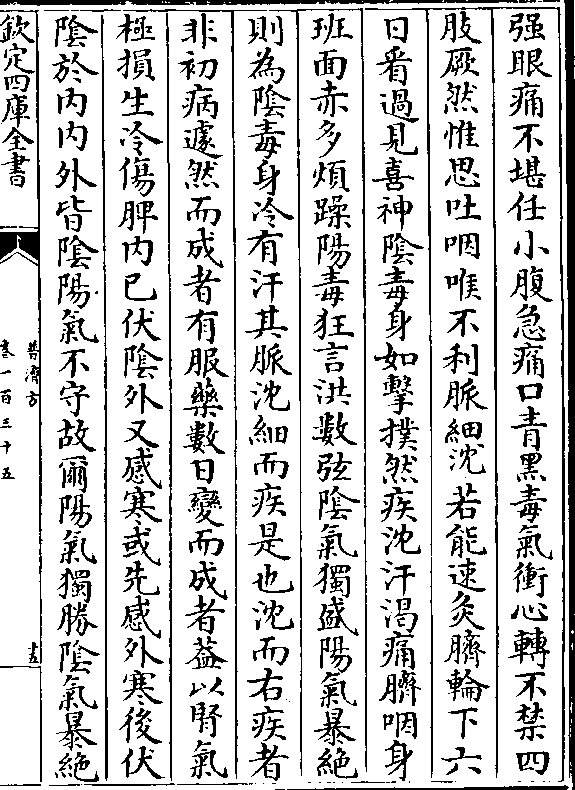 强眼痛不堪任小腹急痛口青黑毒氣衝心轉不禁四
肢厥然惟思吐咽喉不利脈細沈若能速灸臍輪下六
日看過見喜神隂毒身如擊撲然疾沈汗渴痛臍咽身
班面赤多煩躁陽毒狂言洪數弦隂氣獨盛陽氣暴絶
則為隂毒身冷有汗其脈沈細而疾是也沈而右疾者
非初病遽然而成者有服藥數日變而成者葢以腎氣
極損生冷傷脾内已伏隂外又感寒或先感外寒後伏
隂於内内外皆隂陽氣不守故爾陽氣獨勝隂氣暴絶
欽定四庫全書
普濟方
卷一百三十五